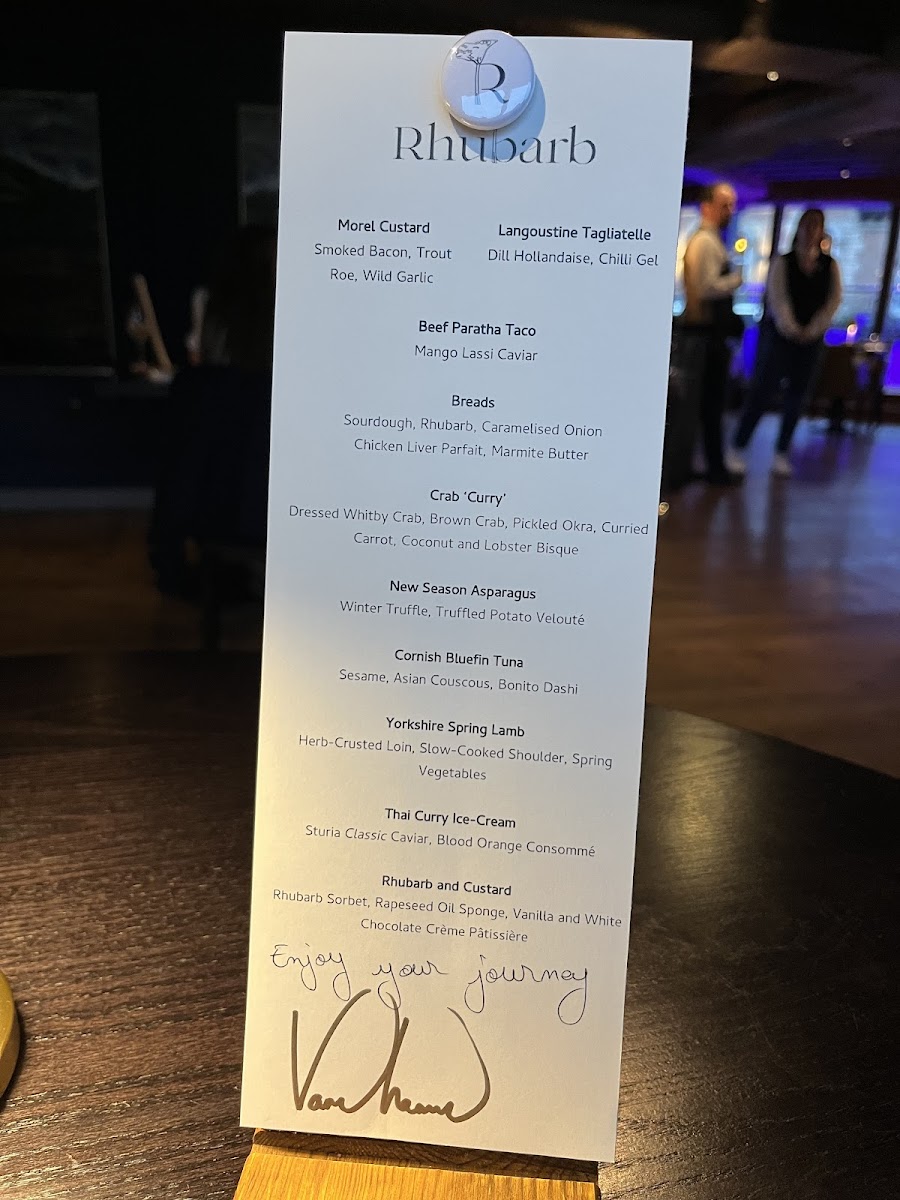 R
Rhubarb
Morel Custard
Smoked Bacon, Trout
Roe, Wild Garlic
Langoustine Tagliatelle
Dill Hollandaise, Chilli Gel
Beef Paratha Taco
Mango Lassi Caviar
Breads
Sourdough, Rhubarb, Caramelised Onion
Chicken Liver Parfait, Marmite Butter
Crab ‘Curry’
Dressed Whitby Crab, Brown Crab, Pickled Okra, Curried
Carrot, Coconut and Lobster Bisque
New Season Asparagus
Winter Truffle, Truffled Potato Velouté
Cornish Bluefin Tuna
Sesame, Asian Couscous, Bonito Dashi
Yorkshire Spring Lamb
Herb-Crusted Loin, Slow-Cooked Shoulder, Spring
Vegetables
Thai Curry Ice-Cream
Sturia Classic Caviar, Blood Orange Consommé
Rhubarb and Custard
Rhubarb Sorbet, Rapeseed Oil Sponge, Vanilla and White
Chocolate Crème Pâtissière
Enjoy your journey